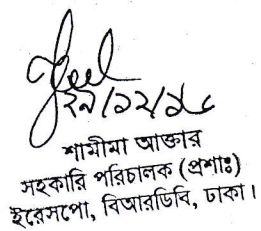 শামীমা আক্তার
সহকারি পরিচালক (প্রশাঃ)
ইরেসপো, বিআরডিবি, ঢাকা।